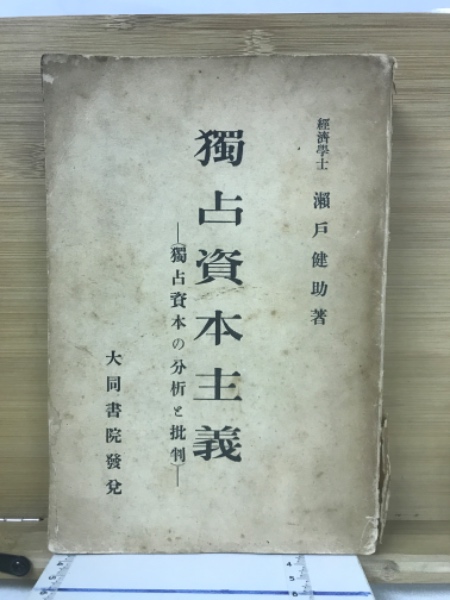 經濟學士 瀨戶健助著
獨占資本主義
—(獨占資本の分析と批判)—
大同書院發兌